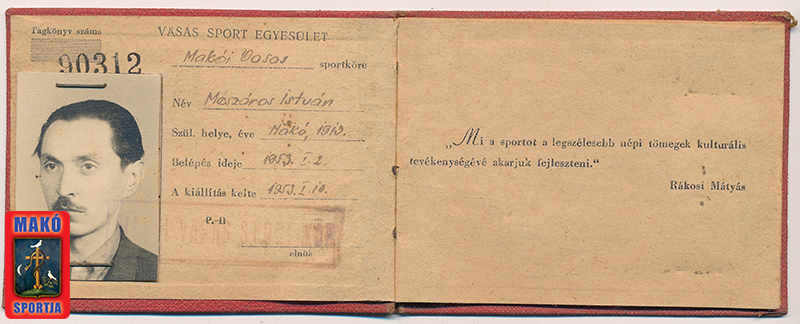 Tagkönyv száma
90312
VASAS SPORT EGYESÜLET
Makói Vasas sportköre
Név Mészáros István
Szül. helye, éve Makó, 1913.
Belépés ideje 1953. I. 2.
A kiállítás kelte 1953. I. 10.
P. H
elnök
„Mi a sportot a legszélesebb népi tömegek kulturális
tevékenységévé akarjuk fejleszteni.“
Rákosi Mátyás
MAKÓ
SPORTJA